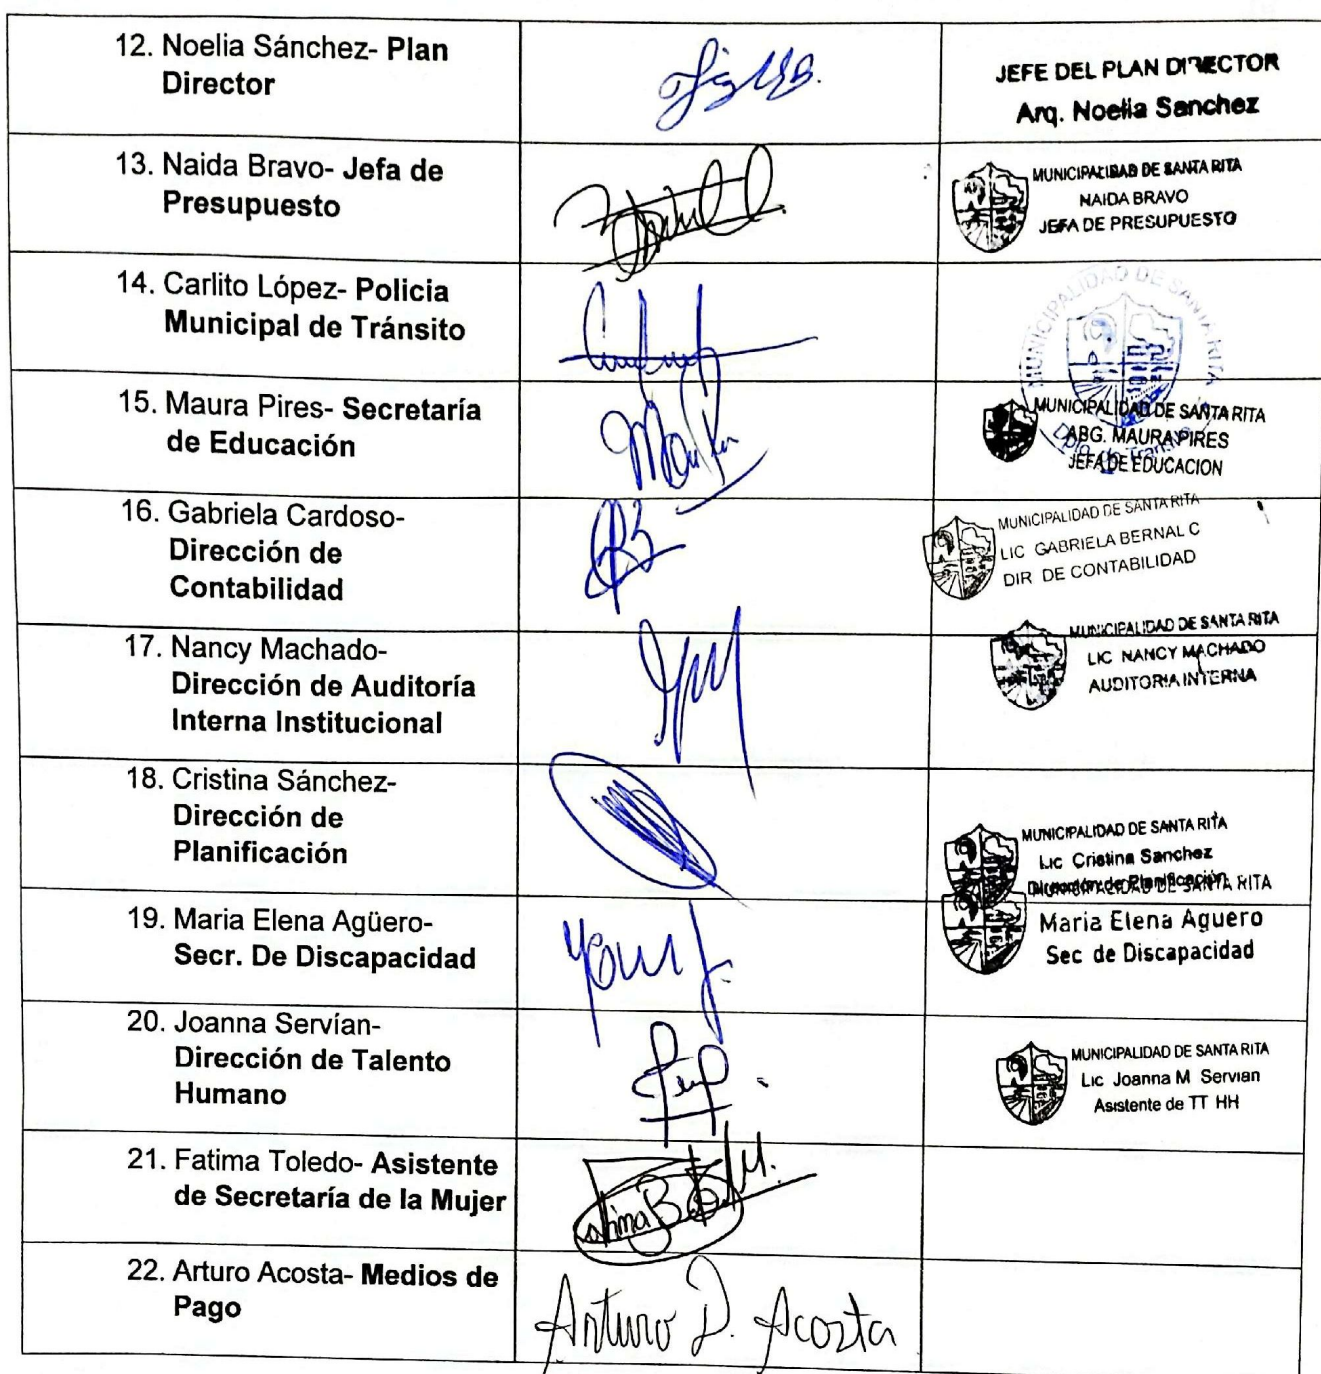 12. Noelia Sánchez- Plan
Director
JEFE DEL PLAN DIRECTOR
Arq. Noelia Sanchez
13. Naida Bravo- Jefa de
Presupuesto
MUNICIPALIDAD DE SANTA RITA
NAIDA BRAVO
JEFA DE PRESUPUESTO
14. Carlito López- Policia
Municipal de Tránsito
MUNICIPALIDAD DE SANTA RITA
Dpto. de Transito
15. Maura Pires- Secretaría
de Educación
MUNICIPALIDAD DE SANTA RITA
ABG. MAURA PIRES
JEFA DE EDUCACION
16. Gabriela Cardoso-
Dirección de
Contabilidad
MUNICIPALIDAD DE SANTA RITA
LIC GABRIELA BERNAL C
DIR DE CONTABILIDAD
17. Nancy Machado-
Dirección de Auditoría
Interna Institucional
MUNICIPALIDAD DE SANTA RITA
LIC NANCY MACHADO
AUDITORIA INTERNA
18. Cristina Sánchez-
Dirección de
Planificación
MUNICIPALIDAD DE SANTA RITA
Lic Cristina Sanchez
Dirección de Planificación
19. Maria Elena Agüero-
Secr. De Discapacidad
MUNICIPALIDAD DE SANTA RITA
Maria Elena Aguero
Sec de Discapacidad
20. Joanna Servían-
Dirección de Talento
Humano
MUNICIPALIDAD DE SANTA RITA
Lic Joanna M Servian
Asistente de TT HH
21. Fatima Toledo- Asistente
de Secretaría de la Mujer
22. Arturo Acosta- Medios de
Pago
Arturo D. Acosta